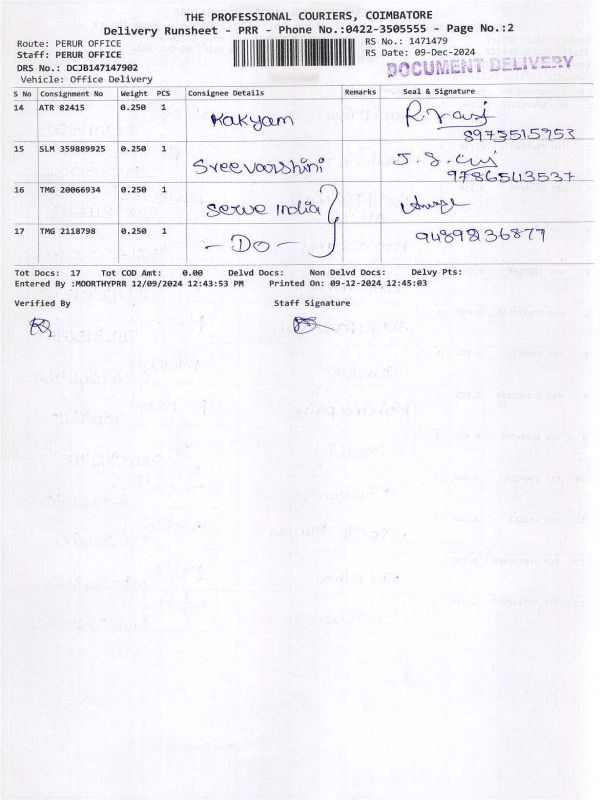 THE PROFESSIONAL COURIERS, COIMBATORE
Delivery Runsheet - PRR - Phone No.:0422-3505555 - Page No.:2
Route: PERUR OFFICE RS No.: 1471479
Staff: PERUR OFFICE RS Date: 09-Dec-2024
DRS No.: DCJB147147902 DOCUMENT DELIVERY
Vehicle: Office Delivery
S No Consignment No Weight PCS Consignee Details Remarks Seal & Signature
14 ATR 82415 0.250 1 Kakyam
8973515953
15 SLM 359889925 0.250 1 Sreevarshini
9786543537
16 TMG 20066934 0.250 1 Serve India
17 TMG 2118798 0.250 1 - Do - 9489236877
Tot Docs: 17 Tot COD Amt: 0.00 Delvd Docs: Non Delvd Docs: Delvy Pts:
Entered By :MOORTHYPRR 12/09/2024 12:43:53 PM Printed On: 09-12-2024 12:45:03
Verified By Staff Signature